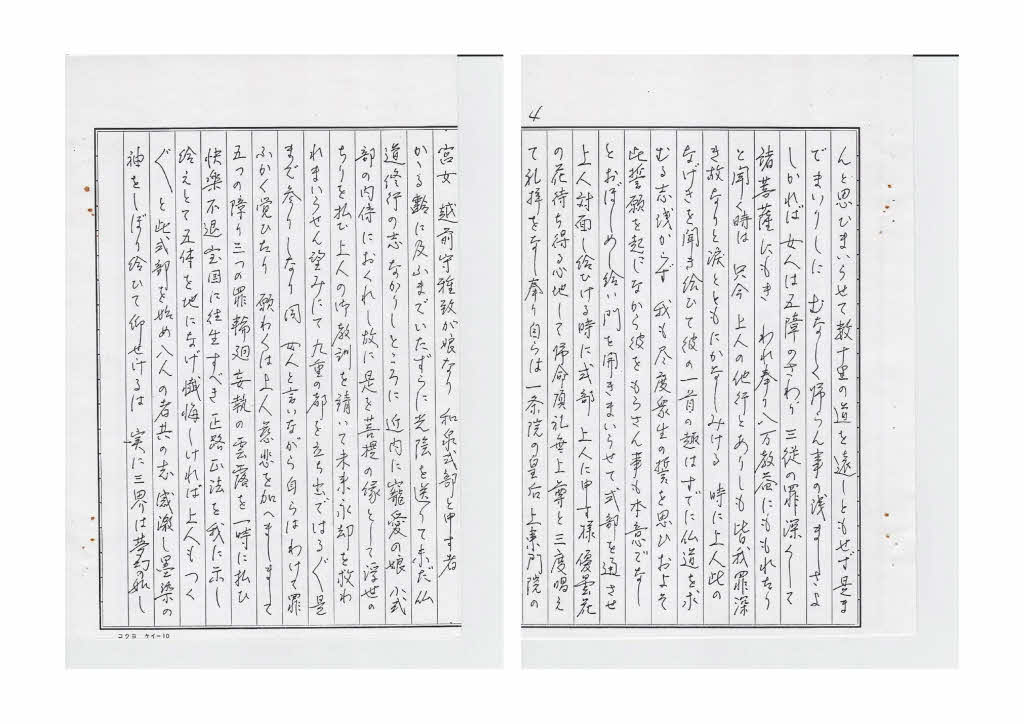 4
んと思ひまいらせて数十里の道を遠しともせず是ま
でまいりしに むなしく帰らん事の浅ましさよ
しかれば女人は五障のさわり 三従の罪深くして
諸菩薩にもき われ奉り八万教益にももれたり
と聞く時は 只今 上人の他行とありしも皆我罪深
き故なりと涙とともにかなしみける 時に上人此の
なげきを聞き給ひて彼の一首の趣はすでに仏道を求
むる志浅からず 我も尽度衆生の誓を思ひおよそ
此誓願を起しながら彼をもらさん事も本意でなし
とおぼしめし給い門を開きまいらせて式部を通させ
上人対面し給ひける時に式部 上人に申す様優曇花
の花待ち得る心地して帰命頂礼無上尊と三度唱え
て礼拝をなし奉り自らは一条院の皇后上東門院の
宮女 越前守雅致が娘なり 和泉式部と申す者
かゝる齢に及ふまでいたずらに光陰を送りて未だ仏
道修行の志なかりしところに 近内に寵愛の娘 小式
部の内侍におくれし故に是を菩提の縁として浮世の
ちりを払む上人の御教訓を請いて未来永却を救わ
れまいらせん望みにて九重の都を立ち出ではるぐ是
まで参りしなり 同 女人と言いながら自らはわけて罪
ふかく覚ひたり 願わくは上人慈悲を加へましまして
五つの障り三つの罪輪廻妄執の雲霧を一時に払ひ
快楽不退宝国に往生すべき正路正法を我に示し
給えとて五体を地になげ懺悔しければ上人もつく
ぐと此式部を始め八人の者共の志 感激し墨染の
袖をしぼり給ひて仰せけるは 実に三界は夢幻の如し
コクヨ ケイ-10